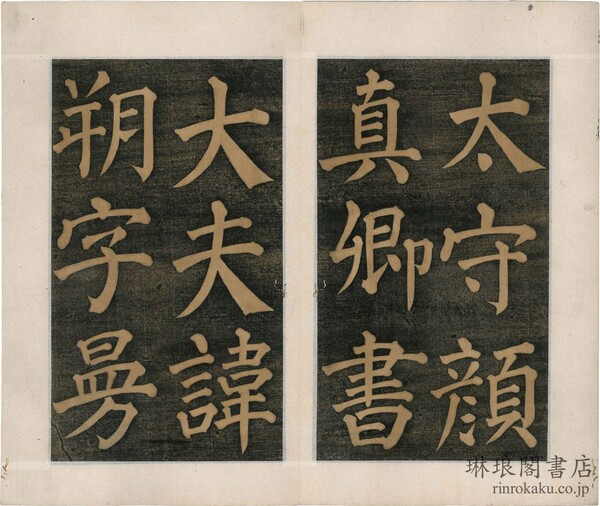 太守顔
真卿書
大夫諱
朔字曼
琳琅閣書店
rinrokaku.co.jp